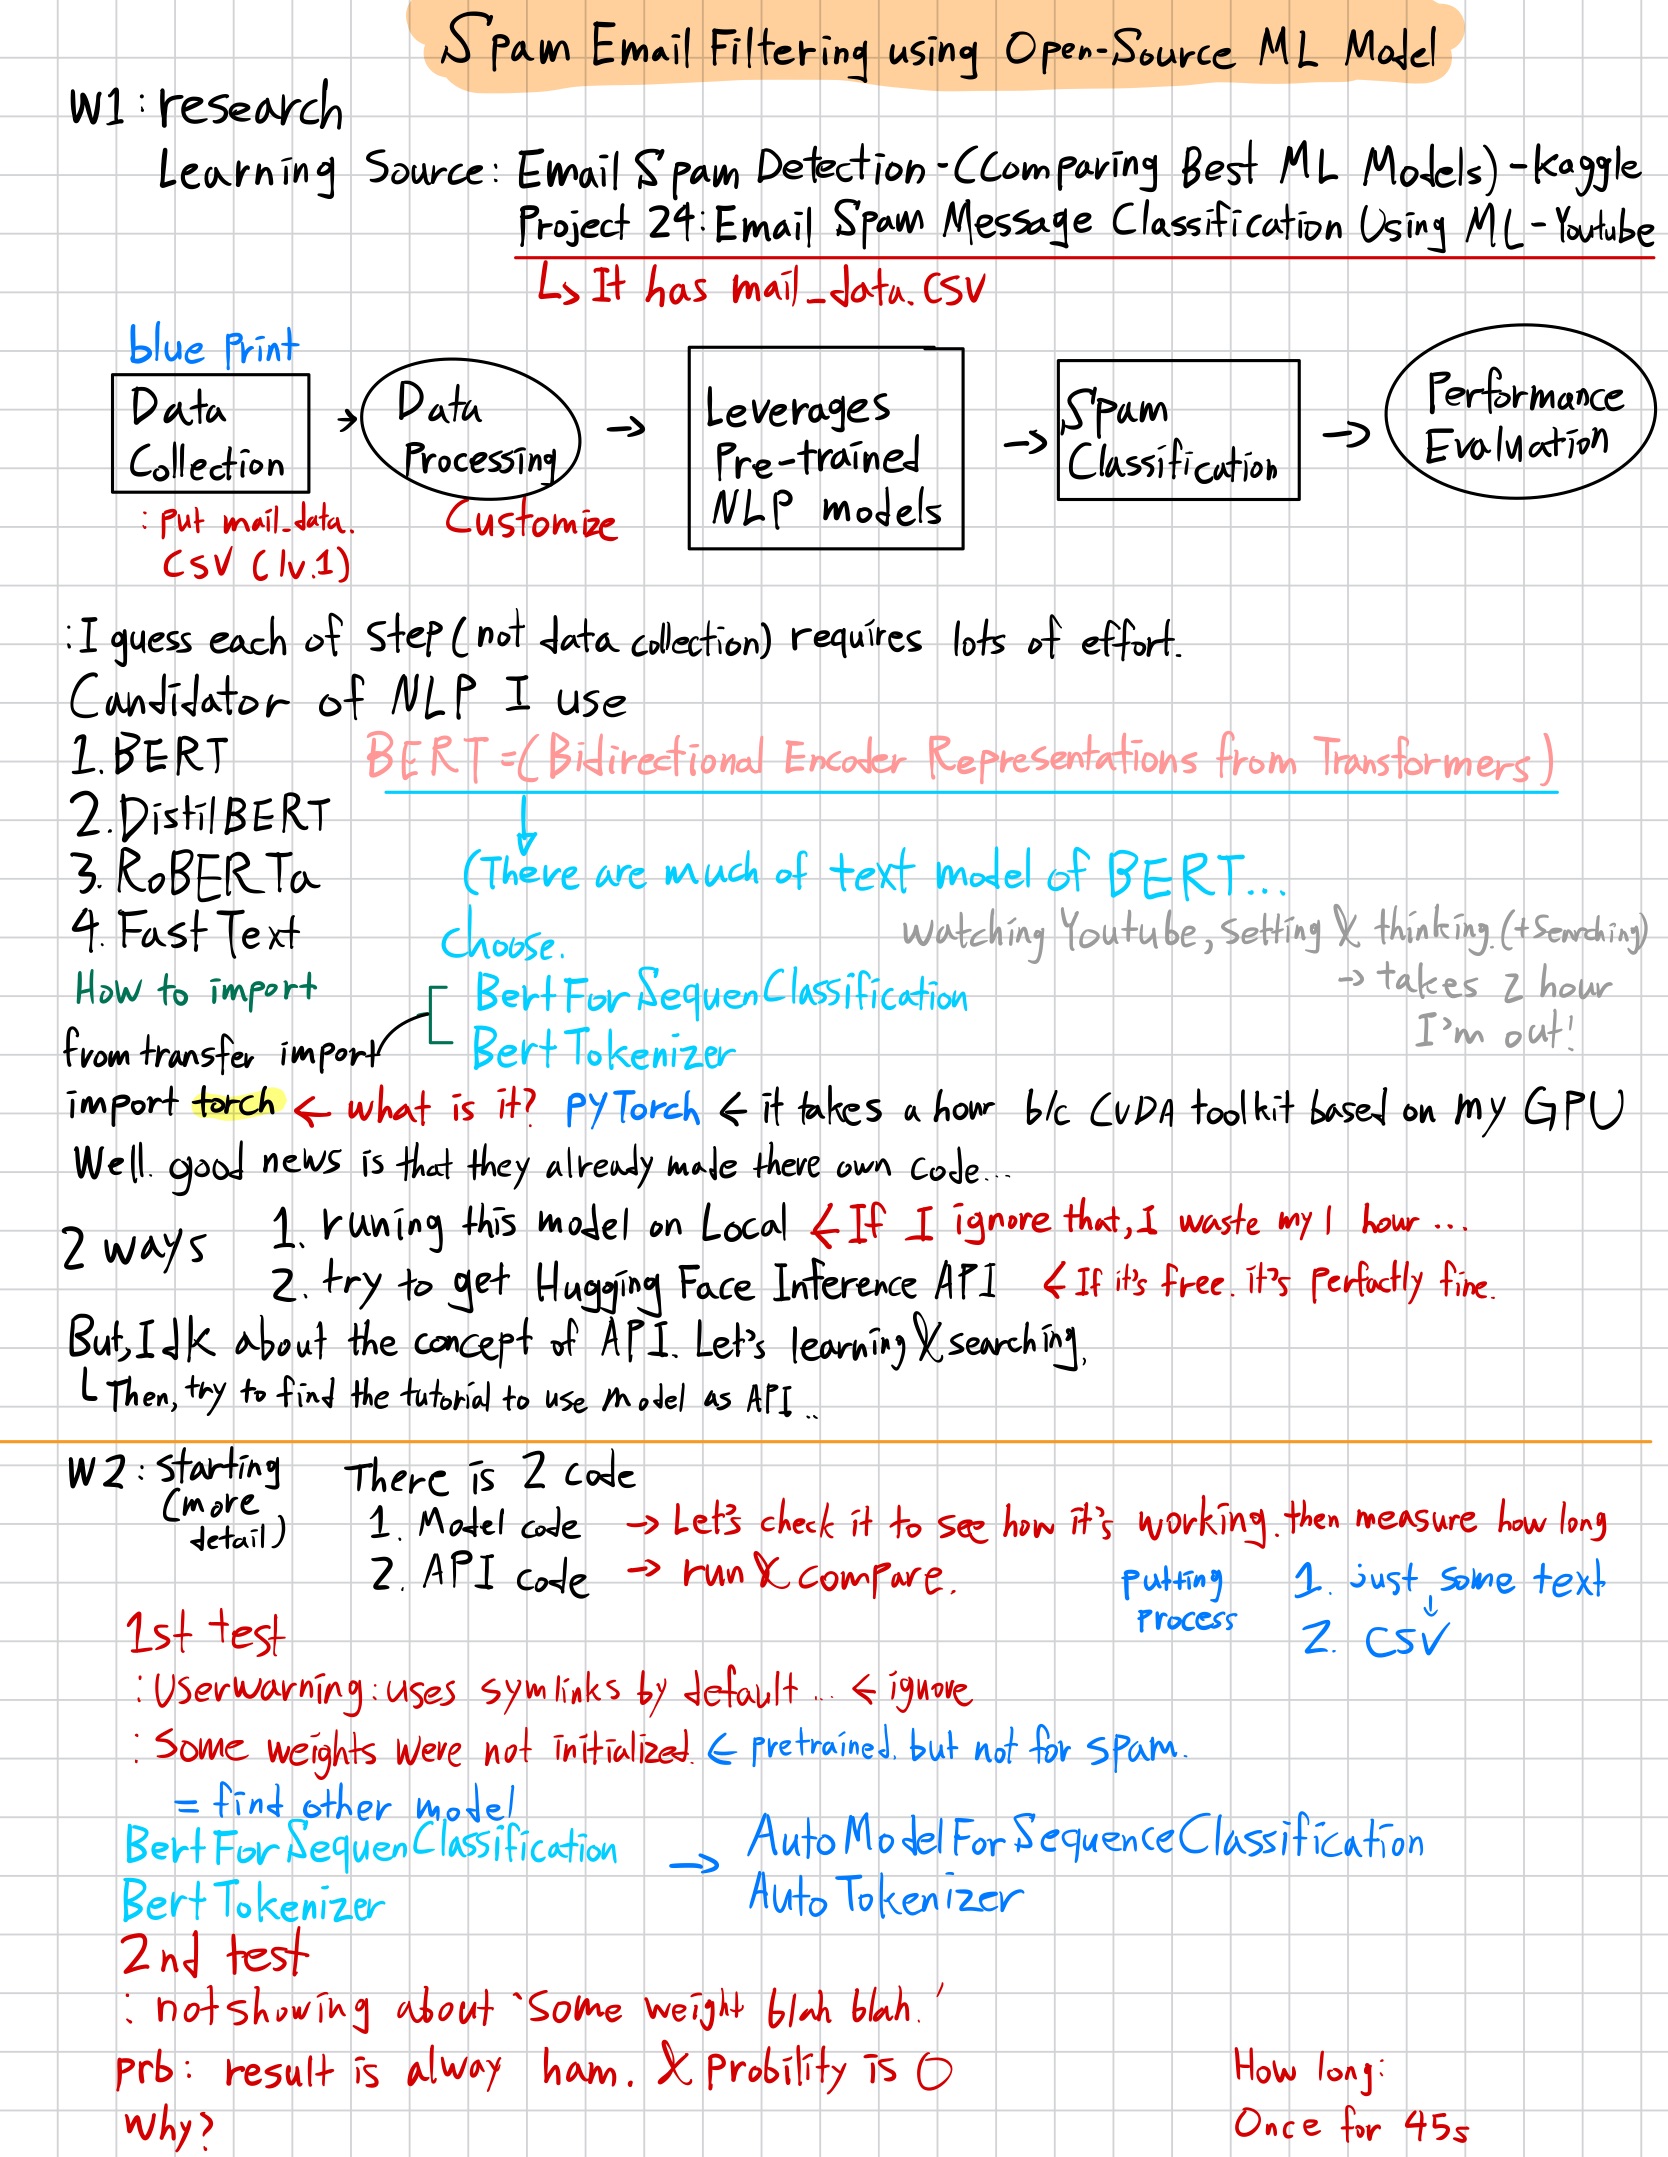 Spam Email Filtering using Open-Source ML Model
W1: research
Learning Source: Email Spam Detection-(Comparing Best ML Models)-Kaggle
Project 24: Email Spam Message Classification Using ML-Youtube
↳ It has mail_data.CSV
blue print
Data
Collection
→
Data
Processing
→
Leverages
Pre-trained
NLP models
→
Spam
Classification
→
Performance
Evaluation
: put mail_data.
CSV (lv.1)
Customize
: I guess each of step (not data collection) requires lots of effort.
Candidator of NLP I use
1. BERT
BERT =(Bidirectional Encoder Representations from Transformers)
2. DistilBERT
3. RoBERTa
(There are much of text model of BERT...
4. FastText
Choose.
watching Youtube, setting & thinking.(+Searching)
→ takes 2 hour
I'm out!
How to import
BertForSequenClassification
from transfer import
BertTokenizer
import torch ← what is it? PYTorch ← it takes a hour b/c CUDA toolkit based on my GPU
Well. good news is that they already made there own code...
2 ways
1. runing this model on Local ← If I ignore that, I waste my 1 hour ...
2. try to get Hugging Face Inference API ← If it's free. it's perfactly fine.
But, Idk about the concept of API. Let's learning & searching.
└ Then, try to find the tutorial to use model as API..
W2: starting
(more
detail)
There is 2 code
1. Model code → Let's check it to see how it's working. then measure how long
2. API code → run & compare.
putting
process
1. just some text
↓
2. CSV
1st test
: Userwarning: uses symlinks by default... ← ignore
: Some weights were not initialized. ← pretrained. but not for spam.
= find other model
BertForSequenClassification → AutoModelForSequenceClassification
BertTokenizer
AutoTokenizer
2nd test
: not showing about 'Some weight blah blah.'
prb: result is alway ham. & Probility is 0
Why?
How long:
Once for 45s